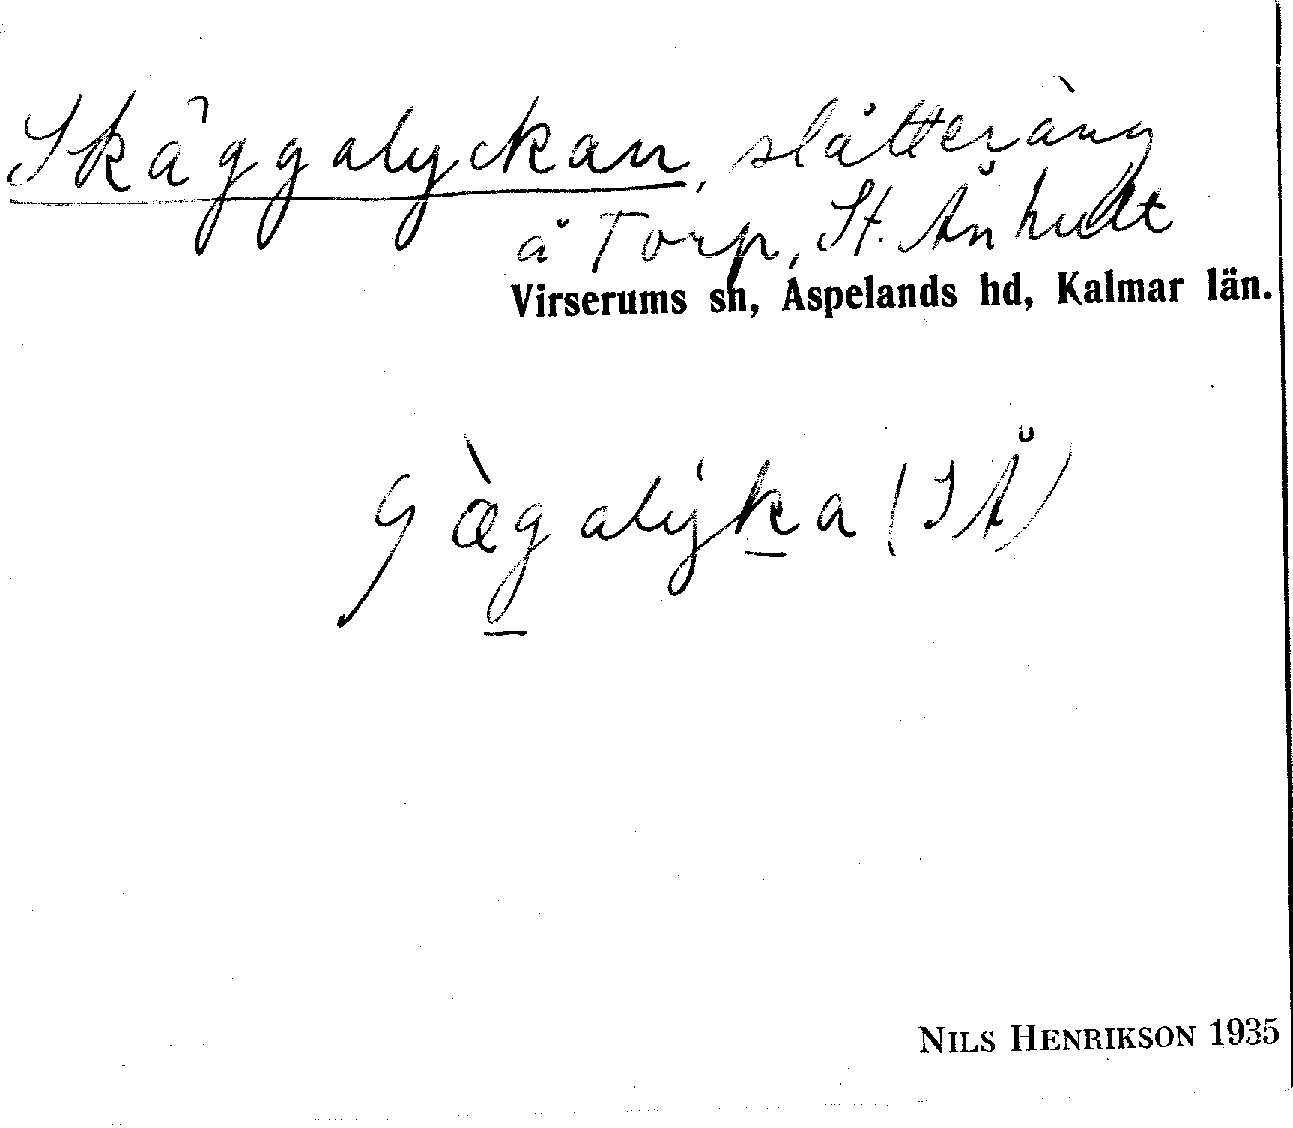 Skäggalyckan, slåtteräng
å Torp, St. Ånhult
Virserums sn, Aspelands hd, Kalmar län.
(SÅ)
NILS HENRIKSON 1935